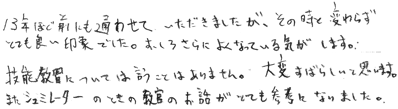 13年ほど前にも通わせていただきましたが、その時と変わらず
とても良い印象でした。むしろさらによくなっている気がします。
技能教習については言うことはありません。大変すばらしいと思います。
またシュミレーターのときの教官のお話がとても参考になりました。